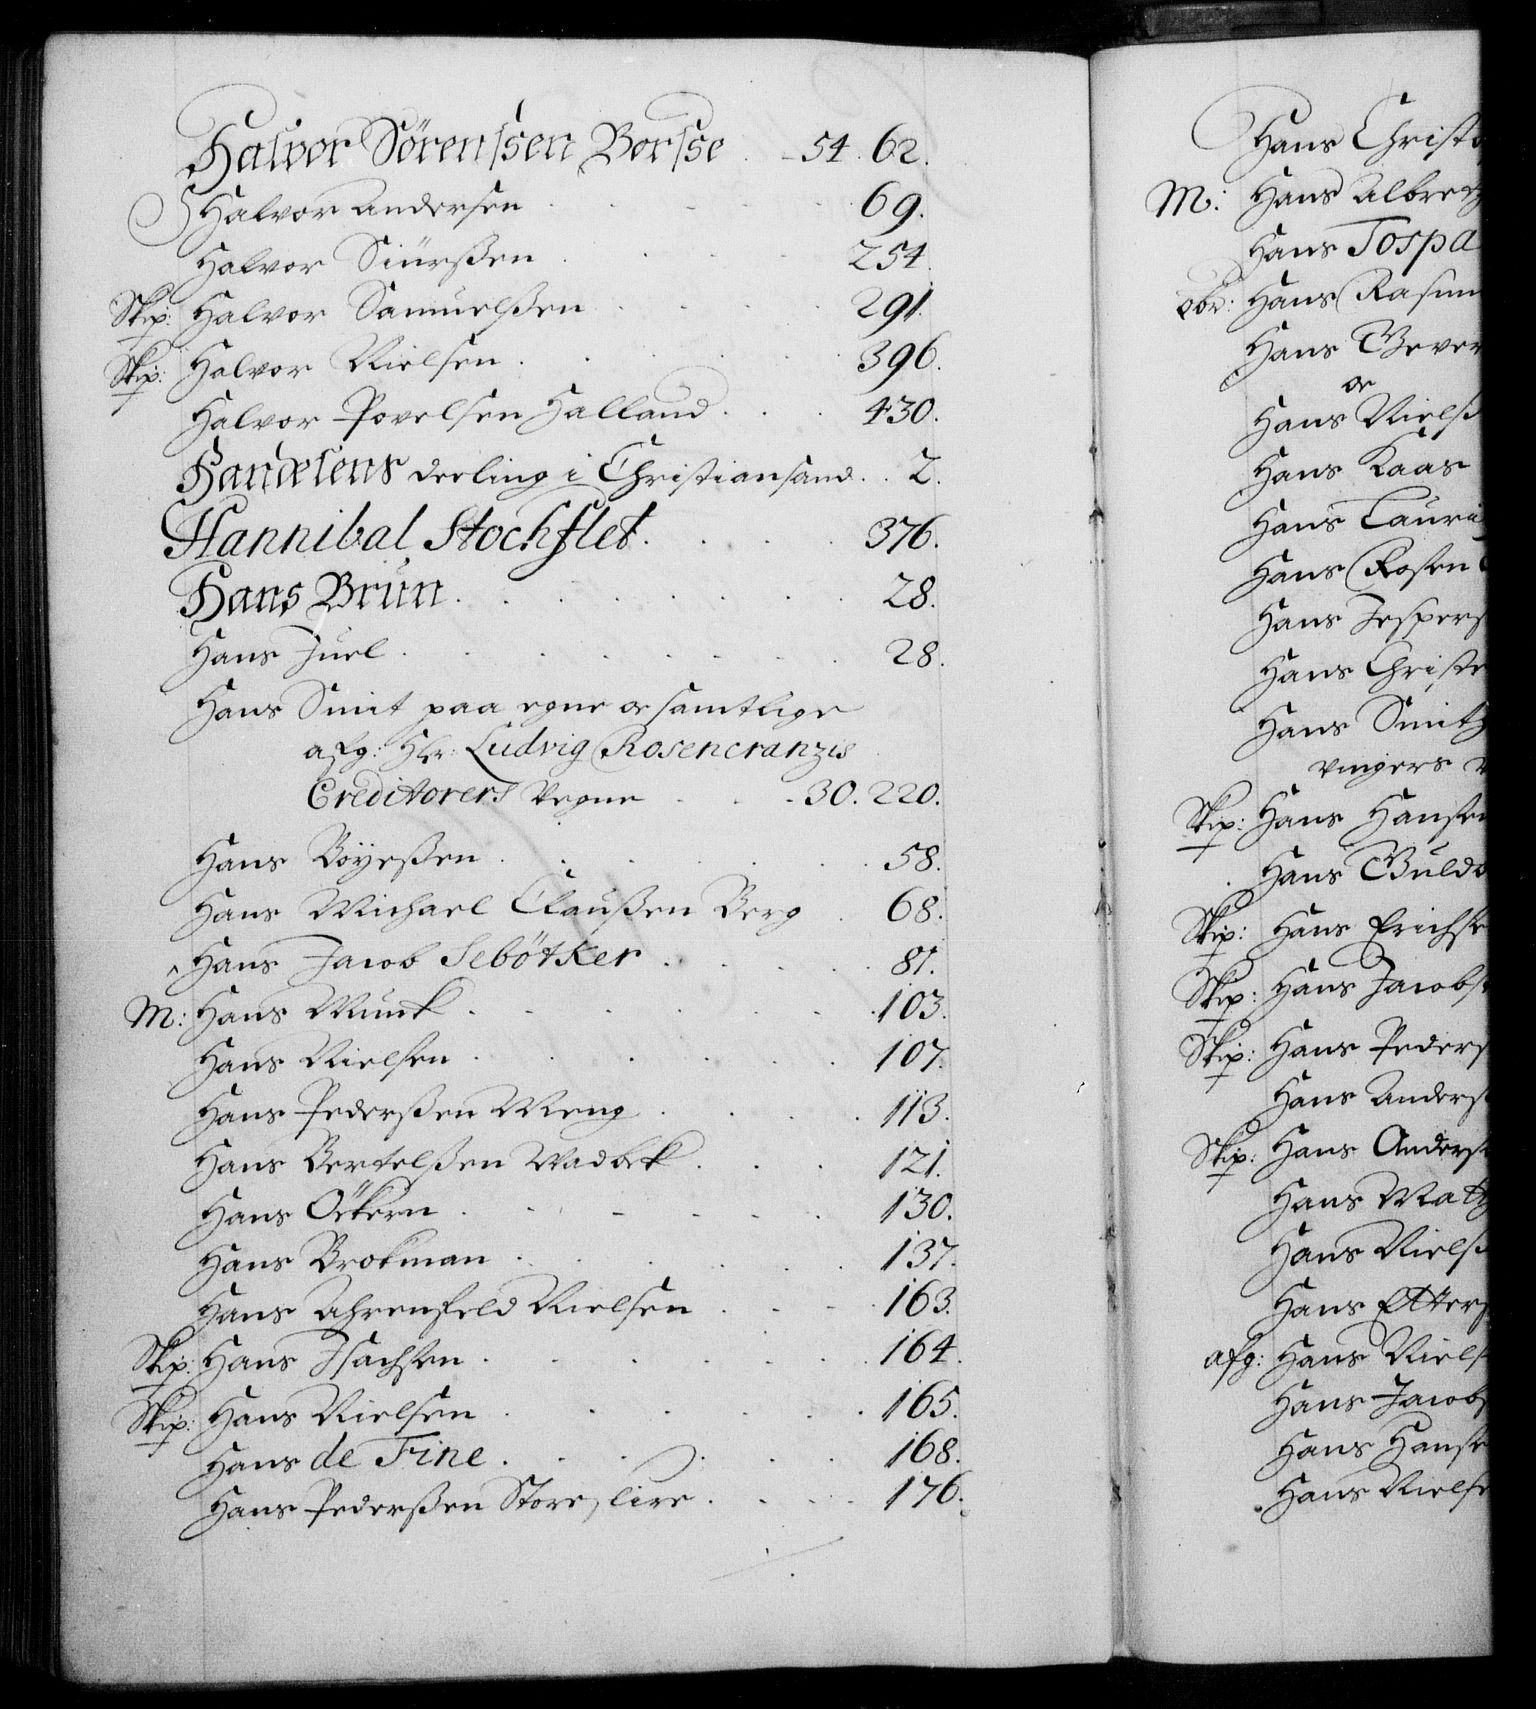 Halvor Sörenssen Borsse . 54. 62.
Halvor Andersen . 69.
Halvor Siürßen . 254.
Skip: Halvor Samuelßen . 291.
Skip: Halvor Nielsen . 396.
Halvor Povelsen Halland . 430.
Handelens deeling i Christiansand . 2.
Hannibal Stochflet . 376.
Hans Brun . 28.
Hans Juel . 28.
Hans Smit paa egne oc samtlige
afg: Hr: Ludvig Rosencranzis
Creditorers Vegne . 30. 220.
Hans Böyeßen . 58.
Hans Michael Claußen Berg . 68.
Hans Jacob Sebötker . 81.
M: Hans Munk . 103.
Hans Nielsen . 107.
Hans Pederßen Meng . 113.
Hans Bertelßen Wadbek . 121.
Hans Öckern . 130.
Hans Brokman . 137.
Hans Ahrenfeld Nielsen . 163.
Skip: Hans Isachsen . 164.
Skip: Hans Nielsen . 165.
Hans de Fine . 168.
Hans Pederßen . 176.
Hans Christo
M: Hans Albretz
Hans Tospa
Hans Rasm
Hans Bever
oc
Hans Niels
Hans Kaas
Hans Lauri
Hans Rosen
Hans Jespers
Hans Christe
Hans Smith
Hans Hansen
Skip: Hans Hansen
Hans Buld
Skip: Hans Erichse
Skip: Hans Jacobs
Skip: Hans Peders
Hans Anders
Skip: Hans Anders
Hans Matt
Hans Niels
Hans Etters
afg: Hans Niels
Hans Jacobs
Hans Hanse
Hans Nielse